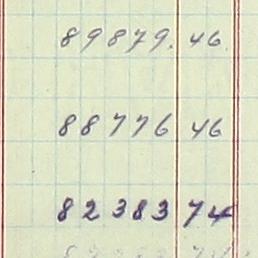 89879.46
88776 46
82383 74